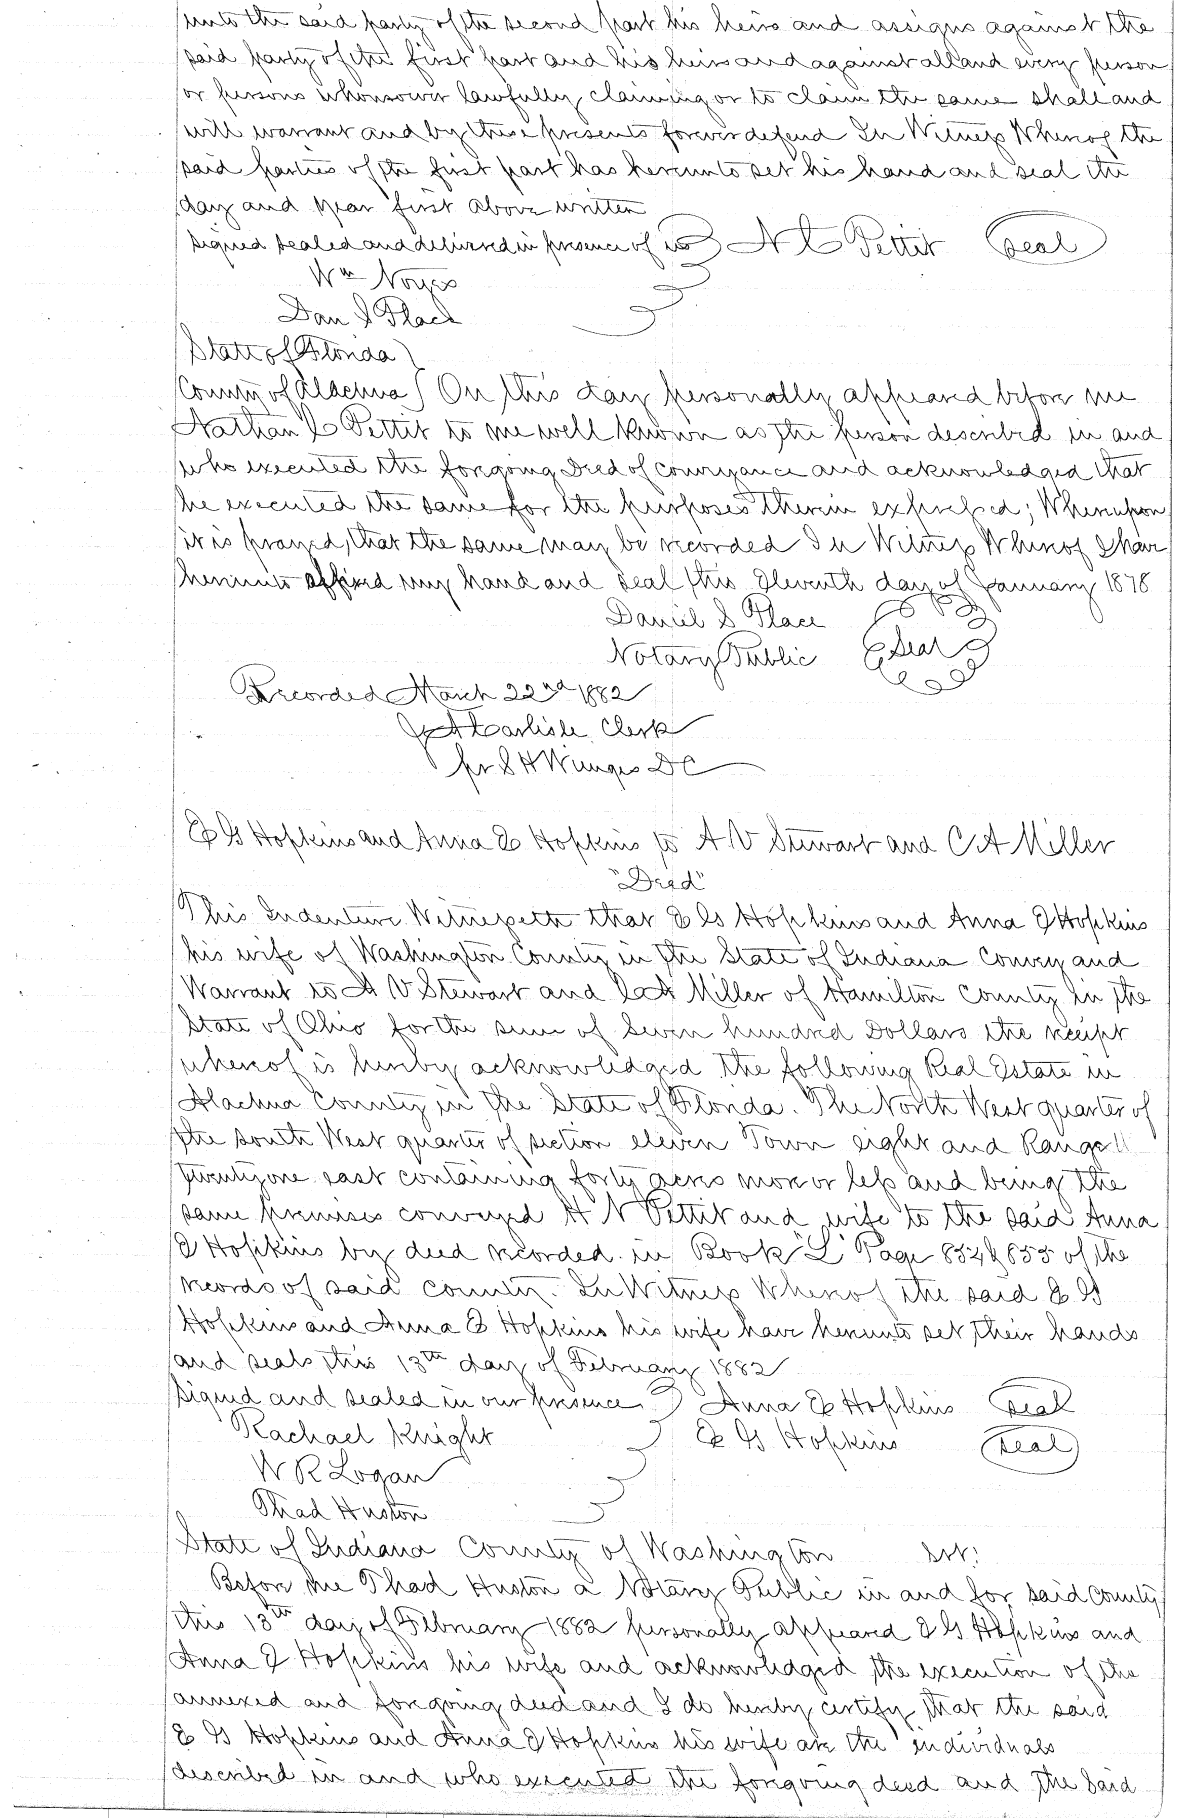 unto the said party of the second part his heirs and assigns against the
said party of the first part and his heirs and against all and every person
or persons whomsoever lawfully claiming or to claim the same shall and
will warrant and by these presents forever defend In Witness Whereof the
said parties of the first part has hereunto set his hand and seal the
day and year first above written
signed sealed and delivered in presence of us N C Pettit (seal)
Wm Noyes
Dan S Place
State of Florida )
County of Alachua ( On this day personally appeared before me
Nathan C Pettit to me well known as the person described in and
who executed the forgoing Deed of conveyance and acknowledged that
he executed the same for the purposes therein expressed; Whereupon
it is prayed, that the same may be recorded In Witness Whereof I have
hereunto affixed my hand and seal this Eleventh day of January 1878
Daniel S Place
Notary Public (Seal)
Recorded March 22nd 1882
J A Carlisle Clerk
pr S H Wienges DC
E G Hopkins and Anna E Hopkins to A V Stewart and C A Miller
"Deed"
This Indenture Witnesseth that E G Hopkins and Anna E Hopkins
his wife of Washington County in the State of Indiana Convey and
Warrant to A V Stewart and C A Miller of Hamilton County in the
State of Ohio for the sum of Seven hundred Dollars the receipt
whereof is hereby acknowledged the following Real Estate in
Alachua County in the State of Florida. The North West quarter of
the south West quarter of section eleven Town eight and Range
twenty one east containing forty acres more or less and being the
same premises conveyed H N Pettit and wife to the said Anna
E Hopkins by deed recorded in Book "L" Page 852 & 853 of the
records of said county. In Witness Whereof the said E G
Hopkins and Anna E Hopkins his wife have hereunto set their hands
and seals this 13th day of February 1882
Signed and sealed in our presence Anna E Hopkins (seal)
Rachael Knight E G Hopkins (seal)
W R Logan
Thad Huston
State of Indiana County of Washington Sct:
Before me Thad Huston a Notary Public in and for said County
this 13th day of February 1882 personally appeared E G Hopkins and
Anna E Hopkins his wife and acknowledged the execution of the
annexed and forgoing deed and I do hereby certify that the said
E G Hopkins and Anna E Hopkins his wife are the individuals
described in and who executed the forgoing deed and the said